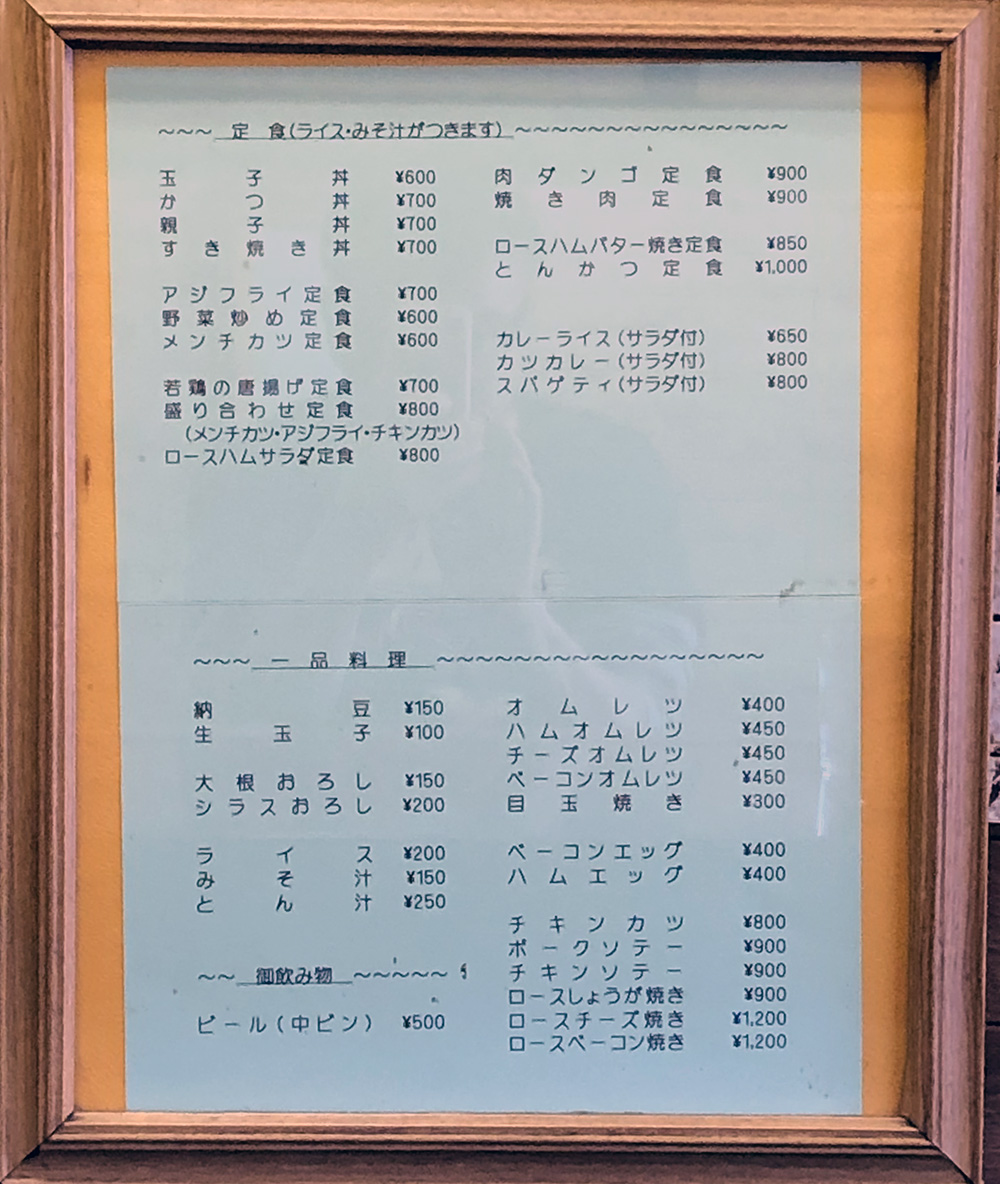 ～～～ 定 食(ライス・みそ汁がつきます)～～～～～～～～～～～～～～～
玉子丼 ¥600
かつ丼 ¥700
親子丼 ¥700
すき焼き丼 ¥700
アジフライ定食 ¥700
野菜炒め定食 ¥600
メンチカツ定食 ¥600
若鶏の唐揚げ定食 ¥700
盛り合わせ定食 ¥800
(メンチカツ・アジフライ・チキンカツ)
ロースハムサラダ定食 ¥800
肉ダンゴ定食 ¥900
焼き肉定食 ¥900
ロースハムバター焼き定食 ¥850
とんかつ定食 ¥1,000
カレーライス(サラダ付) ¥650
カツカレー(サラダ付) ¥800
スパゲティ(サラダ付) ¥800
～～～ 一品料理 ～～～～～～～～～～～～～～～～～
納豆 ¥150
生玉子 ¥100
大根おろし ¥150
シラスおろし ¥200
ライス ¥200
みそ汁 ¥150
とん汁 ¥250
～～ 御飲み物 ～～～～～
ビール(中ビン) ¥500
オムレツ ¥400
ハムオムレツ ¥450
チーズオムレツ ¥450
ベーコンオムレツ ¥450
目玉焼き ¥300
ベーコンエッグ ¥400
ハムエッグ ¥400
チキンカツ ¥800
ポークソテー ¥900
チキンソテー ¥900
ロースしょうが焼き ¥900
ロースチーズ焼き ¥1,200
ロースベーコン焼き ¥1,200